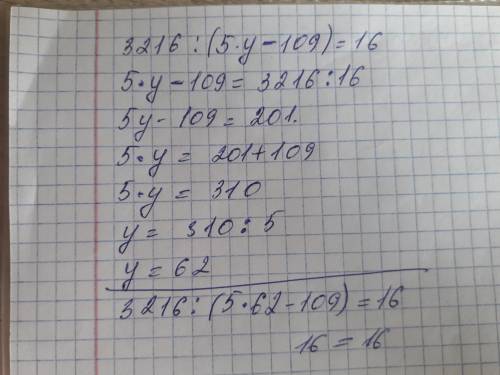 3216 : (5·y - 109) = 16
5·y - 109 = 3216 : 16
5y - 109 = 201.
5·y = 201 + 109
5·y = 310
y = 310 : 5
y = 62
3216 : (5·62 - 109) = 16
16 = 16